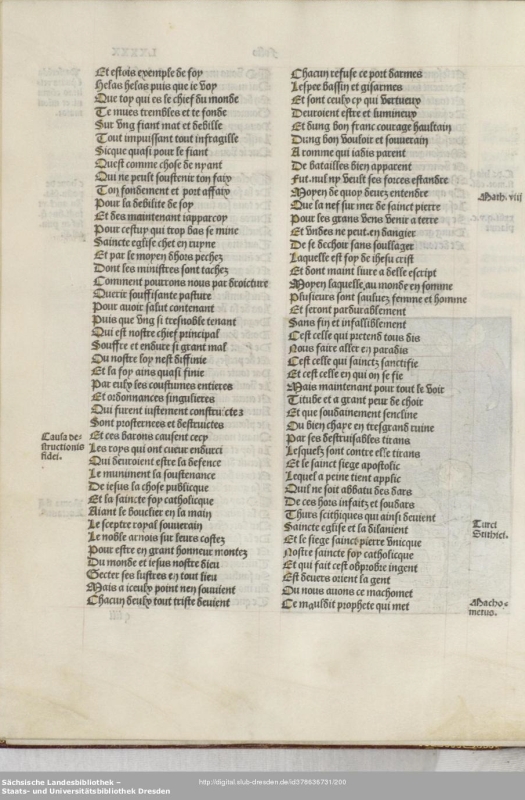 Et estois exemple de foy
Helas helas puis que ie voy
Que toy qui es le chief du monde
Te mues trembles et te fonde
Sur vng fiant mat et debille
Tout impuissant tout infragille
Sicque quasi pour le fiant
Quest comme chose de nyant
Qui ne peult soustenir ton faiy
Ton fondement et port affaiy
Pour la debilite de foy
Et des maintenant iapparcoy
Pour cestuy qui trop bas se mine
Saincte eglise chet en ruyne
Et par le moyen dhois pechez
Dont les ministres sont tachez
Comment pourrons nous par droicture
Querir souffisante pasture
Pour auoir salut contenant
Puis que vng si tresnoble tenant
Qui est nostre chief principal
Souffre et endure si grant mal
Ou nostre loy nest diffinie
Et la foy ains quasi finie
Par eulx les coustumes entieres
Et ordonnances singulieres
Qui furent iustement construictes
Sont prosternees et destruictes
Causa de-
structionis
fidei.
Et ces barons causent cecy
Les roys qui ont cueur endurci
Qui deuroient estre la defence
Le muniment la soustenance
De iesus la chose publicque
Et la saincte foy catholicque
Aiant le bouclier en la main
Le sceptre royal souuerain
Le noble arnois sur leurs costez
Pour estre en grant honneur montez
Du monde et iesus nostre dieu
Gecter ses lustres en tout lieu
Mais a iceulx point nen souuient
Chacun deulx tout triste deuient
Chacun refuse ce port darmes
Lespee bassin et gisarmes
Et sont ceulx cy qui vertueux
Deuroient estre et lumineux
Et dung bon franc courage haultain
Dung bon vouloir et souuerain
A comme qui iadis parent
De batailles bien apparent
Fut. nul ny veult ses forces estandre
Moyen de quoy deuez entendre
Math. viij
Que la nef sur mer de sainct pierre
Pour les grans vens venir a terre
Et vndes ne peut. en dangier
De se dechoir sans soullager
Laquelle est foy de ihesu crist
Et dont maint liure a delle escript
Moyen laquelle, au monde en somme
Plusieurs sont sauluez femme et homme
Et seront pardurablement
Sans fin et infalliblement
Cest celle qui pretend tous dis
Nous faire aller en paradis
Cest celle qui sainctz sanctifie
Et cest celle en qui on se fie
Mais maintenant pour tout le voir
Titube et a grant peur de choir
Et que soubdainement sencline
Ou bien chaye en tresgrand ruine
Par ses destruisables tirans
Lesquelz sont contre elle tirans
Et le sainct siege apostolic
Lequel a peine tient applic
Quil ne soit abbatu des dars
De ces hors infaitz et soubars
Thurs scithiques qui ainsi deuient
Turci
Scithici.
Saincte eglise et la dilanient
Et le siege sainct pierre vnicque
Nostre saincte foy catholicque
Et qui fait cest obprobre ingent
Est deuers orient la gent
Ou nous auons ce machomet
Macho-
metus.
Ce mauldit prophete qui met
Sächsische Landesbibliothek –
Staats- und Universitätsbibliothek Dresden
http://digital.slub-dresden.de/id378636731/200